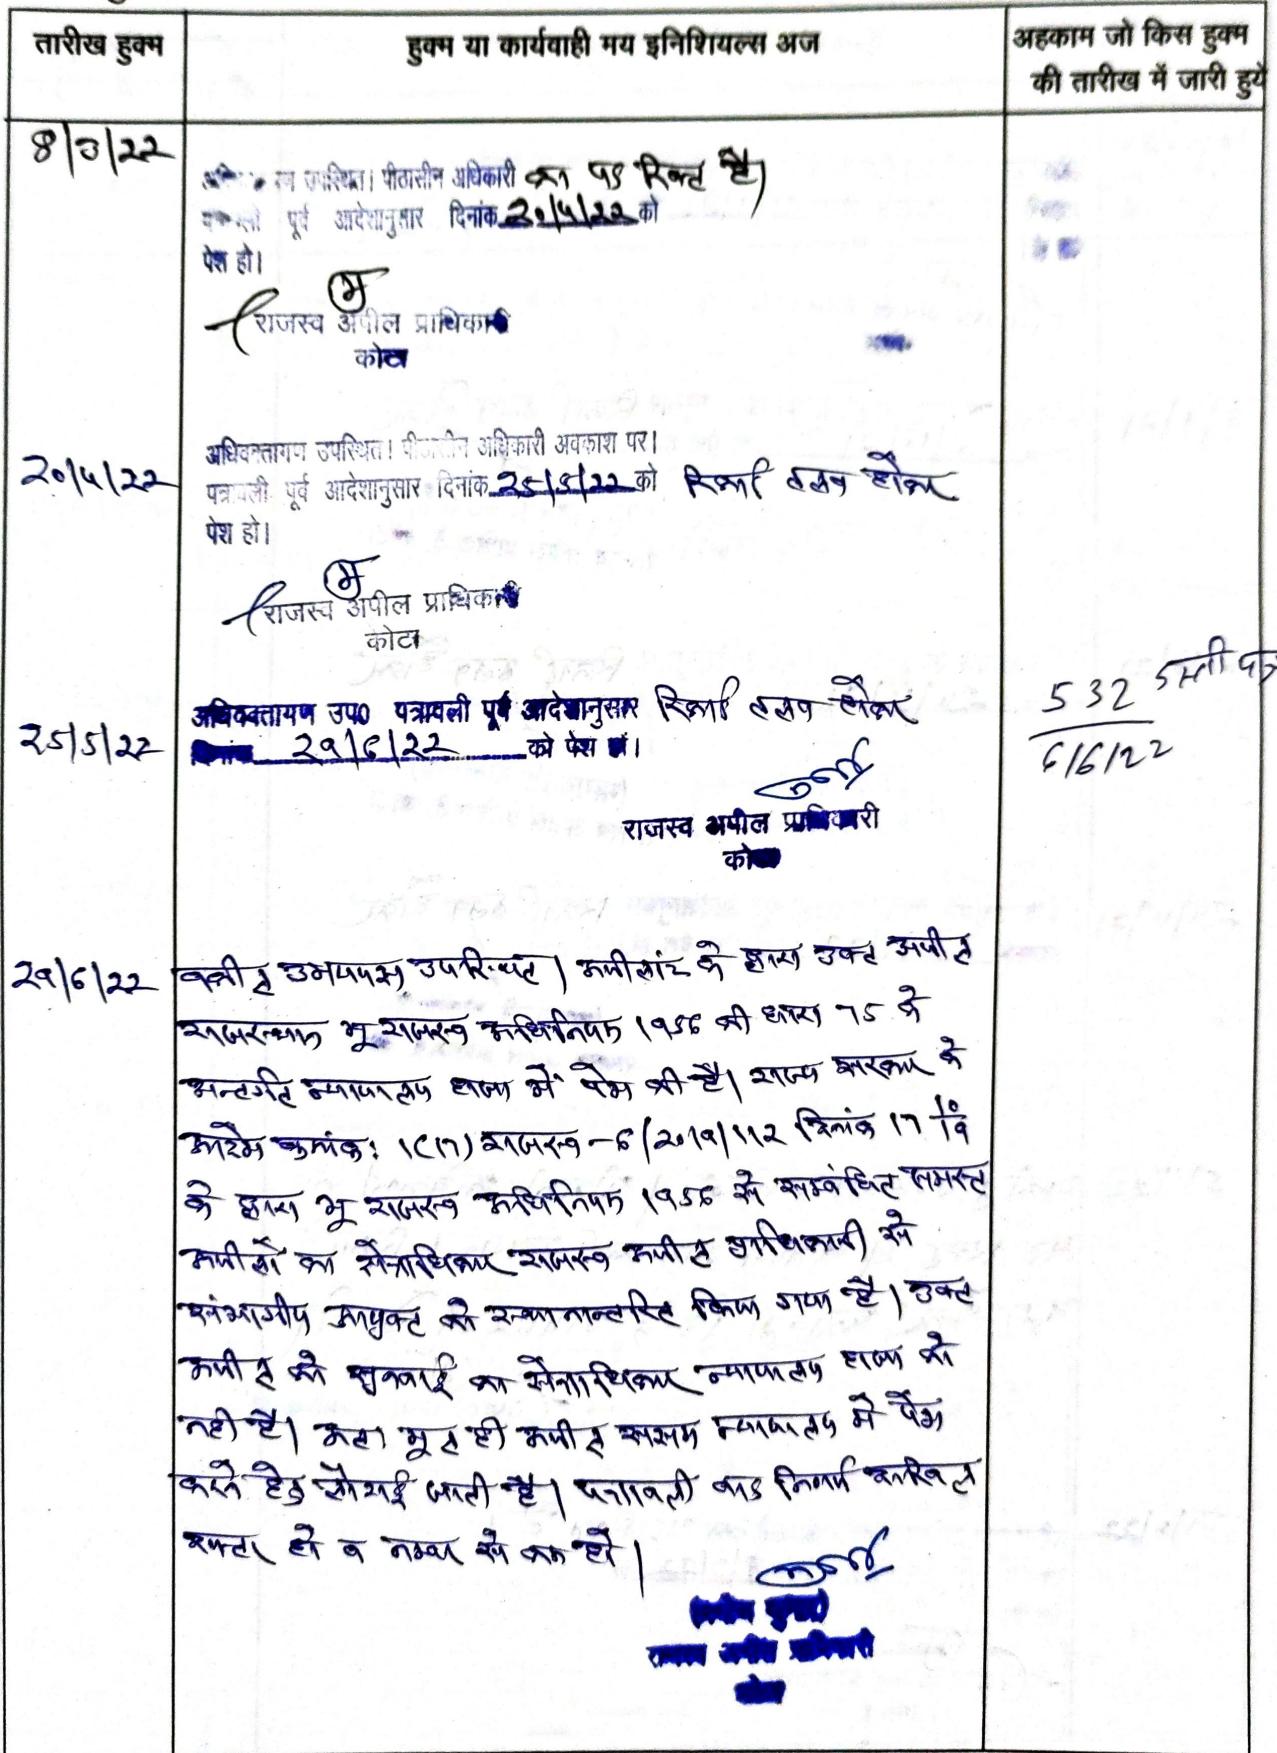 तारीख हुक्म
हुक्म या कार्यवाही मय इनिशियल्स अज
अहकाम जो किस हुक्म
की तारीख में जारी हुये
8/3/22
उपस्थित। पीठासीन अधिकारी का पद रिक्त है।
पूर्व आदेशानुसार दिनांक 20/4/22 को
पेश हो।
राजस्व अपील प्राधिकारी
कोटा
20/4/22
अधिवक्तागण उपस्थित। पीठासीन अधिकारी अवकाश पर।
पत्रावली पूर्व आदेशानुसार दिनांक 25/5/22 को रिकार्ड तलब होकर
पेश हो।
राजस्व अपील प्राधिकारी
कोटा
25/5/22
अधिवक्तागण उप0 पत्रावली पूर्व आदेशानुसार रिकार्ड तलब होकर
दिनांक 29/6/22 को पेश हो।
532
6/6/22
राजस्व अपील प्राधिकारी
कोटा
29/6/22
वकील उभयपक्ष उपस्थित। अपीलांट के द्वारा उक्त अपील
राजस्थान भू राजस्व अधिनियम 1956 की धारा 75 के
अन्तर्गत न्यायालय हाजा में पेश की है। राज्य सरकार के
आदेश क्रमांक: 1(17) राजस्व-6/2019/112 दिनांक 17
के द्वारा भू राजस्व अधिनियम 1956 से सम्बंधित समस्त
अपीलों का क्षेत्राधिकार राजस्व अपील प्राधिकारी से
संभागीय आयुक्त को स्थानान्तरित किया गया है। उक्त
अपील को सुनवाई का क्षेत्राधिकार न्यायालय हाजा को
नही है। अतः मूल ही अपील सक्षम न्यायालय में पेश
करने हेतु लौटाई जाती है। पत्रावली बाद निर्णय दाखिल
दफ्तर हो व नम्बर से कम हो।
राजस्व अपील प्राधिकारी
कोटा